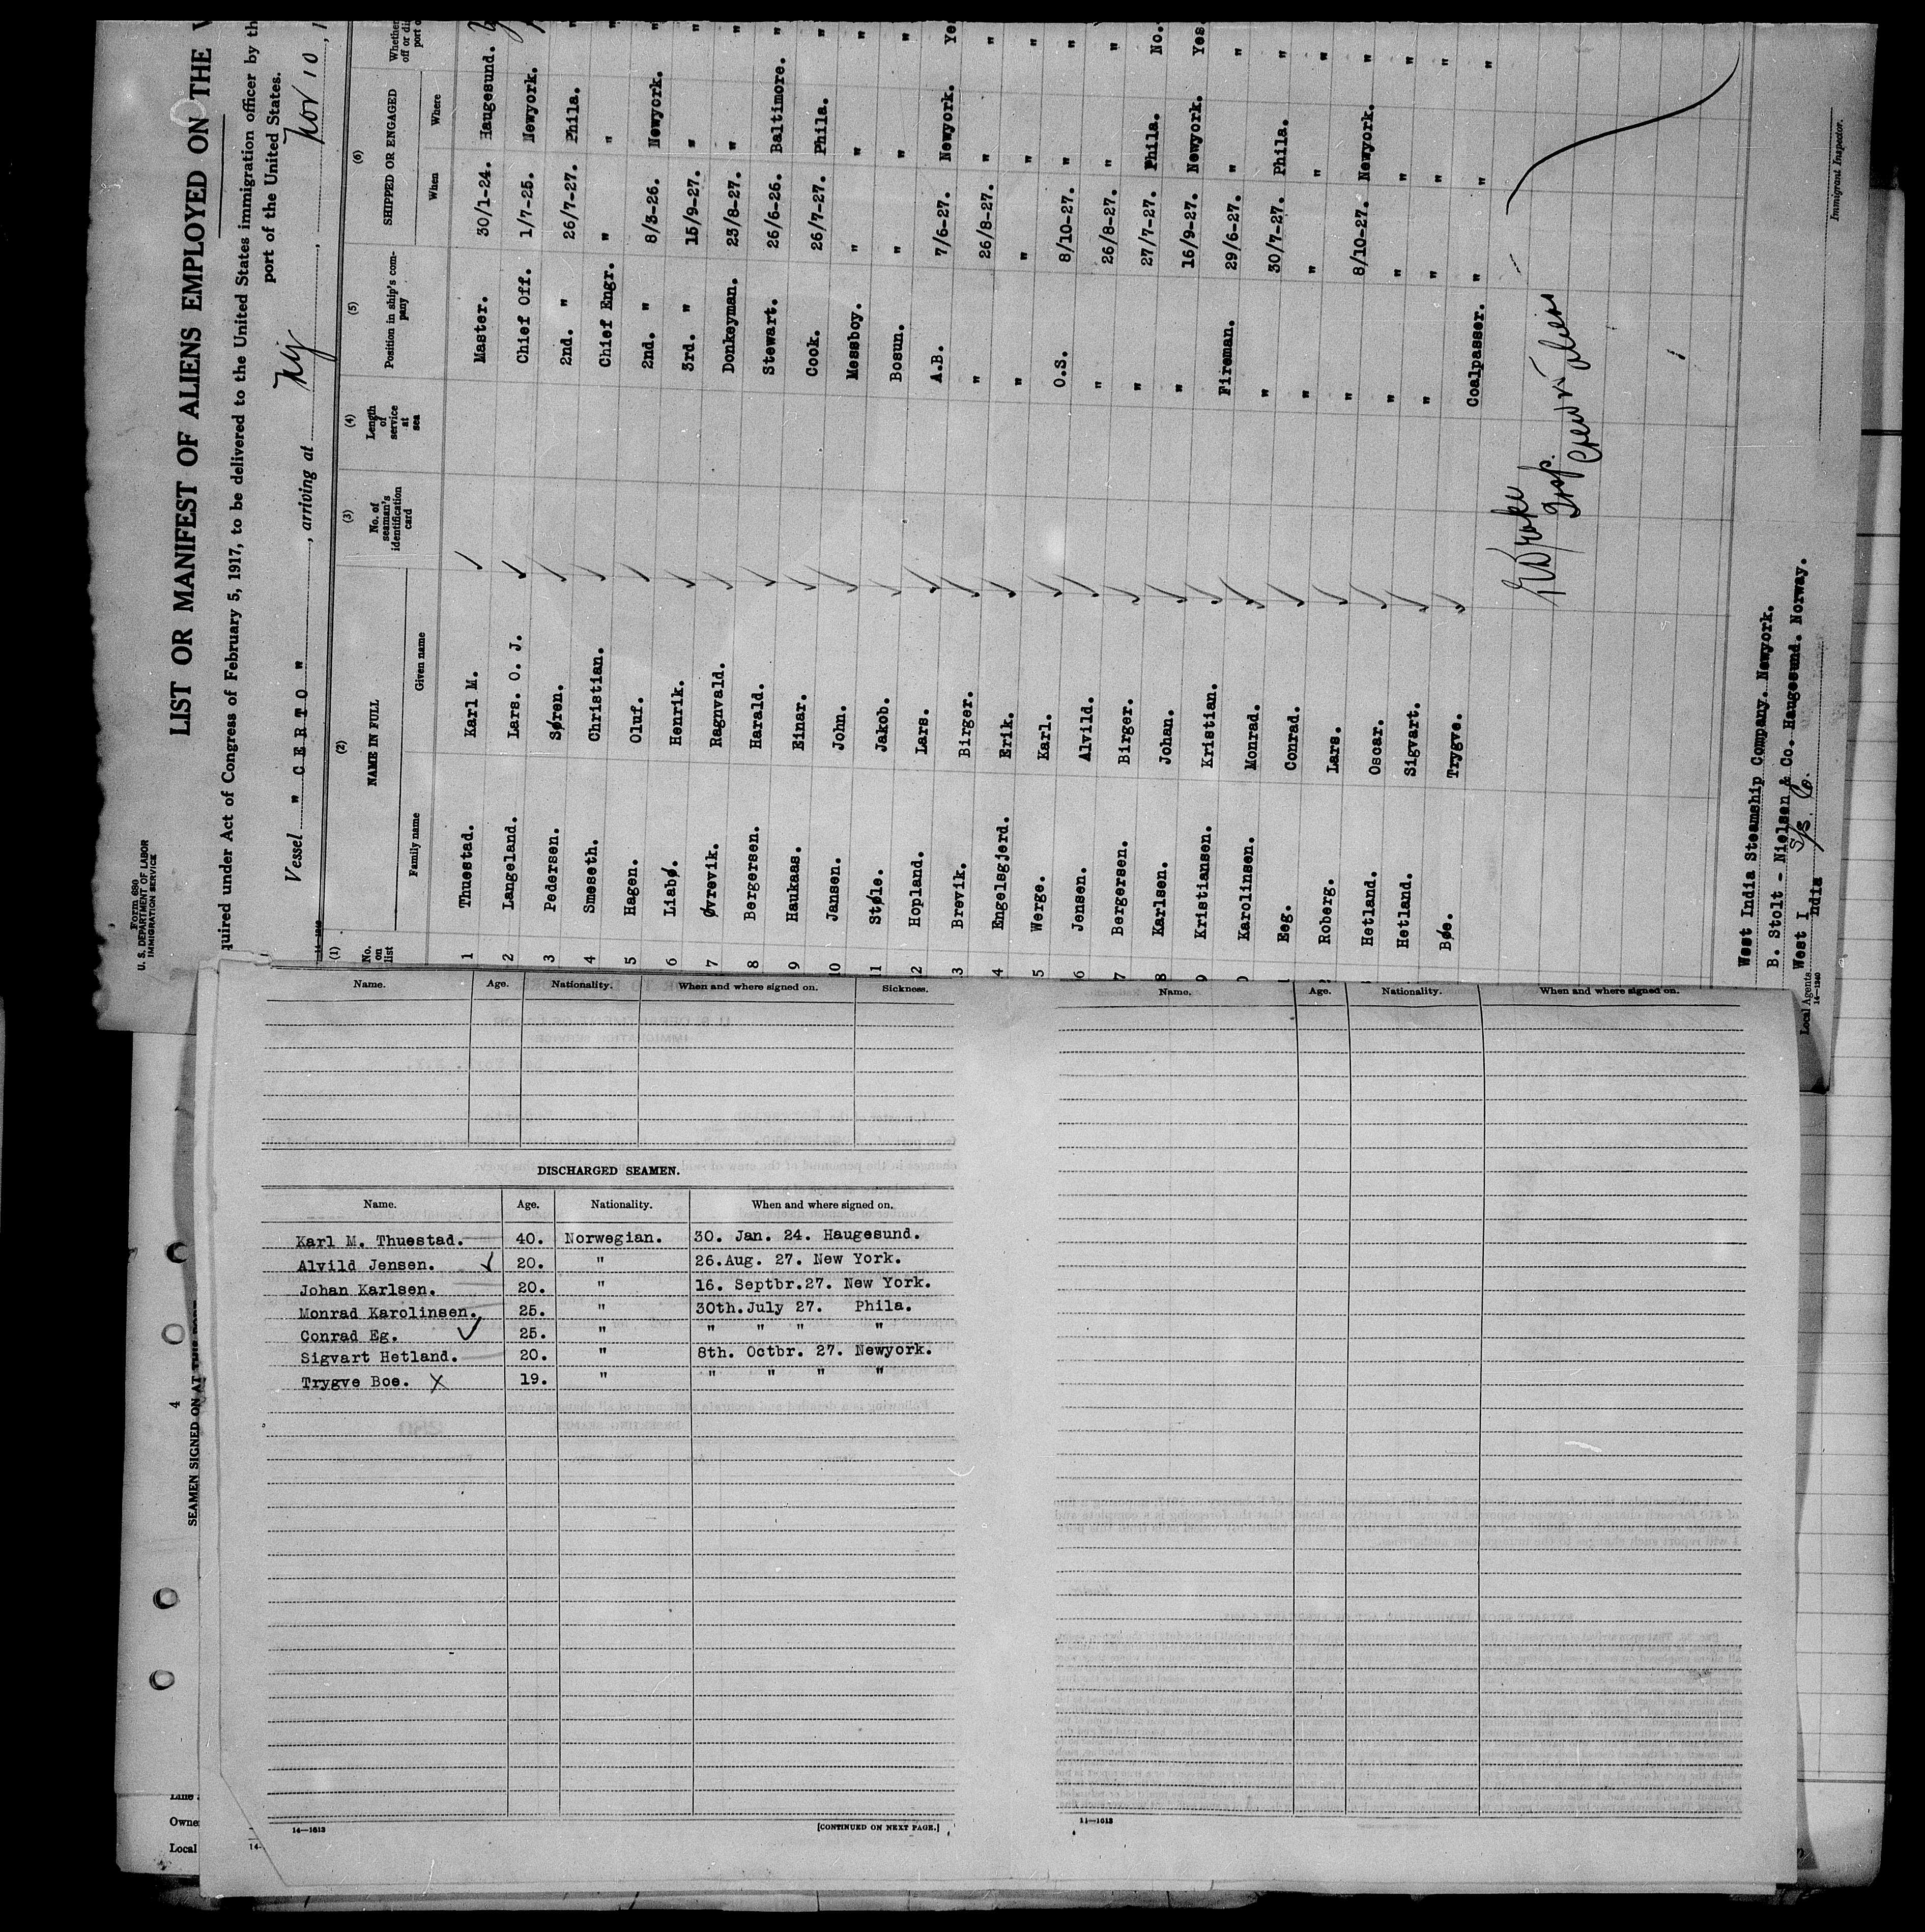 Form 680
U. S. DEPARTMENT OF LABOR
IMMIGRATION SERVICE
LIST OR MANIFEST OF ALIENS EMPLOYED ON THE
quired under Act of Congress of February 5, 1917, to be delivered to the United States immigration officer by th
port of the United States.
Vessel " CERTO ", arriving at NY, Nov 10, 1
(1) (2) (3) (4) (5) (6)
No. on list NAME IN FULL No. of seaman's identification card Length of service at sea Position in ship's company SHIPPED OR ENGAGED Whether
Family name Given name When Where
1 Thuestad. Karl M. Master. 30/1-24. Haugesund.
2 Langeland. Lars. O. J. Chief Off. 1/7-25. Newyork.
3 Pedersen. Søren. 2nd. " 26/7-27. Phila. "
4 Smeseth. Christian. Chief Engr. " " "
5 Hagen. Oluf. 2nd. " 8/3-26. Newyork. "
6 Liabø. Henrik. 3rd. " 15/9-27. " "
7 Øvrevik. Ragnvald. Donkeyman. 23/8-27. " "
8 Bergersen. Harald. Stewart. 26/6-26. Baltimore. "
9 Haukaas. Einar. Cook. 26/7-27. Phila. "
10 Jansen. John. Messboy. " " "
11 Støle. Jakob. Bosun. " " "
12 Hopland. Lars. A.B. 7/6-27. Newyork. Ye
3 Brevik. Birger. " 26/8-27. " "
4 Engelsgjerd. Erik. " " " "
5 Werge. Karl. O.S. 8/10-27. " "
6 Jensen. Alvild. " 26/8-27. " "
7 Bergersen. Birger. " 27/7-27. Phila. No.
8 Karlsen. Johan. " 16/9-27. Newyork. Yes.
9 Kristiansen. Kristian. Fireman. 29/6-27. " "
0 Karolinsen. Monrad. " 30/7-27. Phila. "
1 Eeg. Conrad. " " " "
2 Roberg. Lars. " 8/10-27. Newyork. "
Hetland. Oscar. " " " "
Hetland. Sigvart. " " " "
Bøe. Trygve. Coalpasser. " " "
Insp.
Crew
West India Steamship Company. Newyork.
B. Stolt - Nielsen & Co. Haugesund. Norway.
West India S/S Co.
Local Agents
14-1240
Immigrant Inspector.
Name. Age. Nationality. When and where signed on. Sickness.
DISCHARGED SEAMEN.
Name. Age. Nationality. When and where signed on.
Karl M. Thuestad. 40. Norwegian. 30. Jan. 24. Haugesund.
Alvild Jensen. 20. " 26.Aug. 27. New York.
Johan Karlsen. 20. " 16. Septbr.27. New York.
Monrad Karolinsen. 25. " 30th.July 27. Phila.
Conrad Eg. 25. " " " " "
Sigvart Hetland. 20. " 8th. Octbr. 27. Newyork.
Trygve Boe. X 19. " " " " "
14—1613 [CONTINUED ON NEXT PAGE.]
Name. Age. Nationality. When and where signed on.
11—1613
4
SEAMEN SIGNED ON AT THIS PORT
Owne
Local
14-